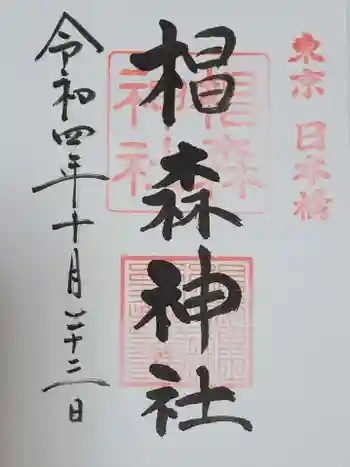 東京 日本橋
椙森神社
椙森
神社
令和四年十月二十二日